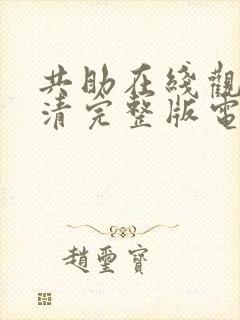 共助在綫觀
清完整版電
趙璽寶